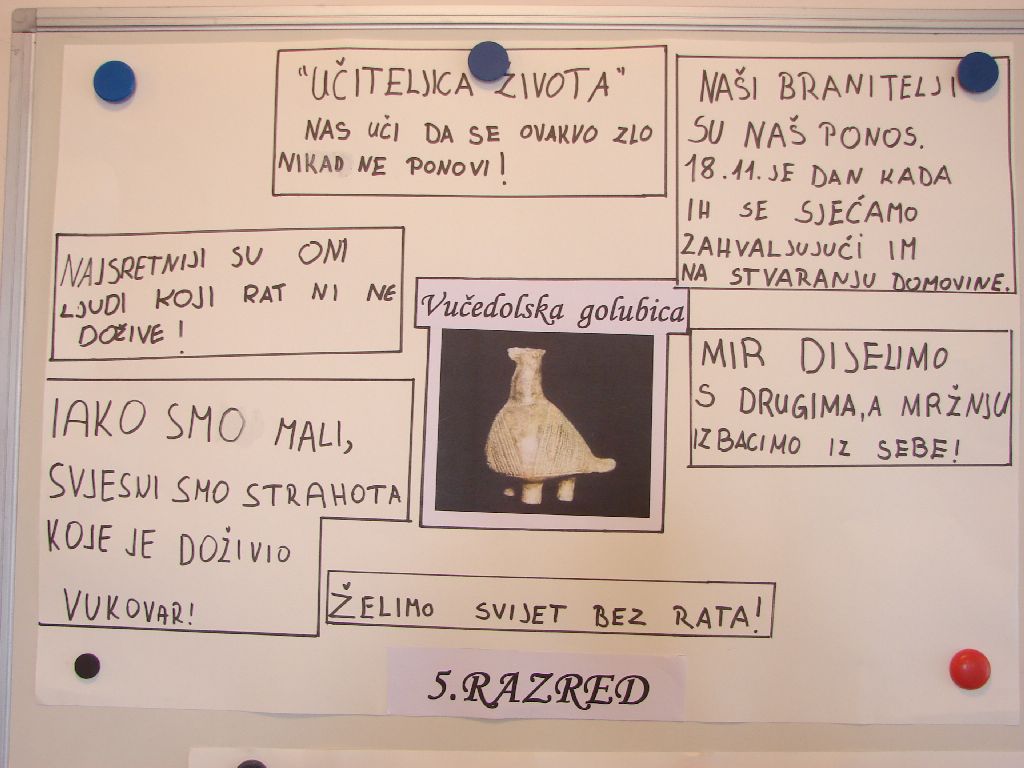 "UČITELJICA ŽIVOTA"
NAS UČI DA SE OVAKVO ZLO
NIKAD NE PONOVI!
NAŠI BRANITELJI
SU NAŠ PONOS.
18.11. JE DAN KADA
IH SE SJEĆAMO
ZAHVALJUJUĆI IM
NA STVARANJU DOMOVINE.
NAJSRETNIJI SU ONI
LJUDI KOJI RAT NI NE
DOŽIVE!
Vučedolska golubica
MIR DIJELIMO
S DRUGIMA, A MRŽNJU
IZBACIMO IZ SEBE!
IAKO SMO MALI,
SVJESNI SMO STRAHOTA
KOJE JE DOŽIVIO
VUKOVAR!
ŽELIMO SVIJET BEZ RATA!
5.RAZRED